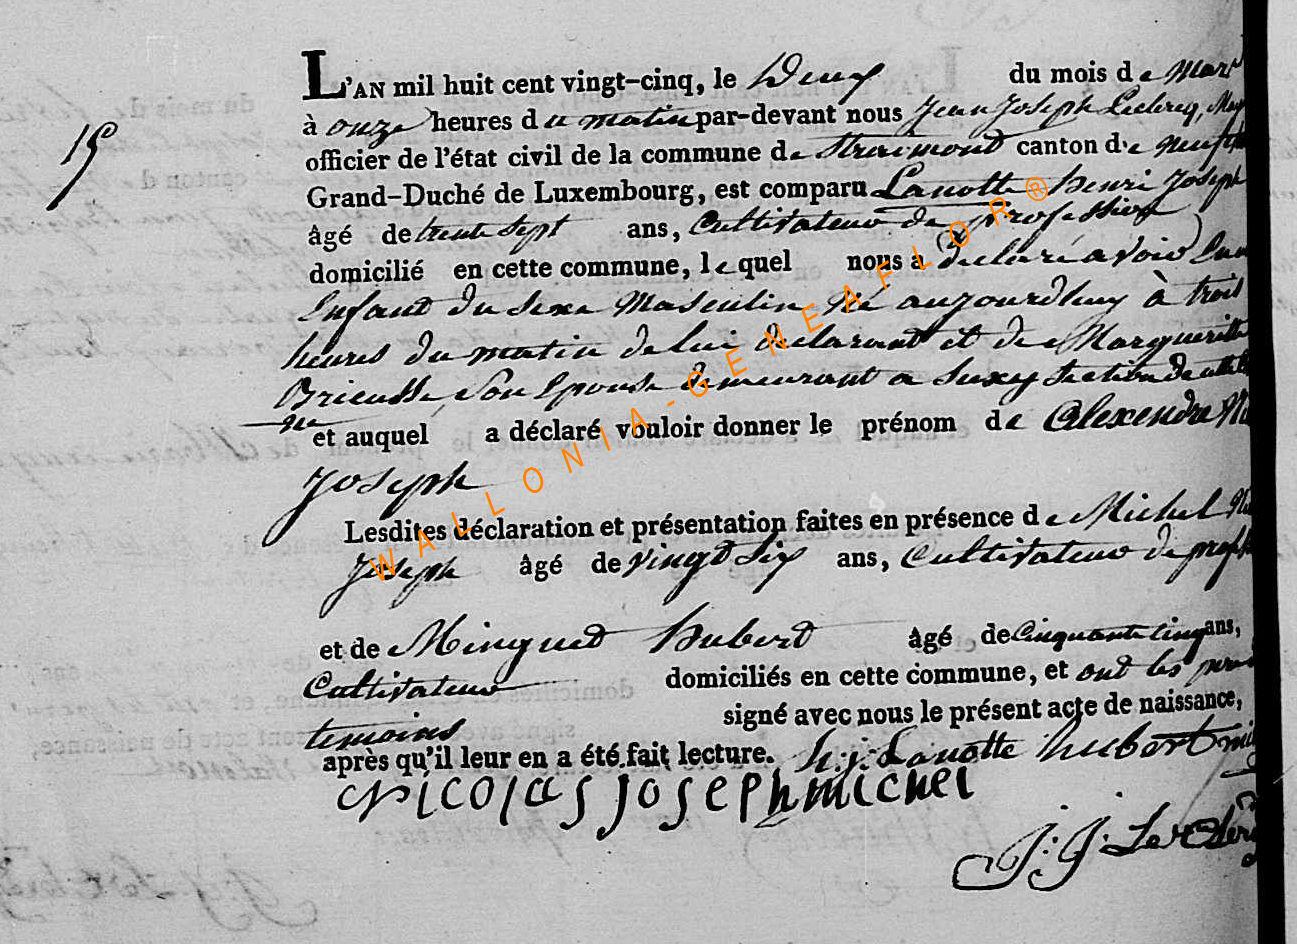 L'AN mil huit cent vingt-cinq, le Deux du mois de Mars
15
à onze heures du matin par-devant nous Jean Joseph Leclercq,
officier de l'état civil de la commune de Straimont canton de
Grand-Duché de Luxembourg, est comparu Lanotte henri Joseph
âgé de trente sept ans, Cultivateur de profession
domicilié en cette commune, lequel nous a declaré avoir
Enfant du sexe Masculin né aujourdhuy à trois
heures du matin de lui declarant et de Marguerite
son Epouse demeurant a Suxy section de
et auquel a déclaré vouloir donner le prénom de Alexendre
Joseph
Lesdites déclaration et présentation faites en présence de Michel
Joseph âgé de vingt Six ans, Cultivateur de
et de Minguet hubert âgé de Cinquante cinq ans,
Cultivateur domiciliés en cette commune, et ont les
temoins signé avec nous le présent acte de naissance,
après qu'il leur en a été fait lecture. h.j. Lanotte hubert
Nicolas Joseph michel
J: J: Le
WALLONIA-GENEAFLOR®